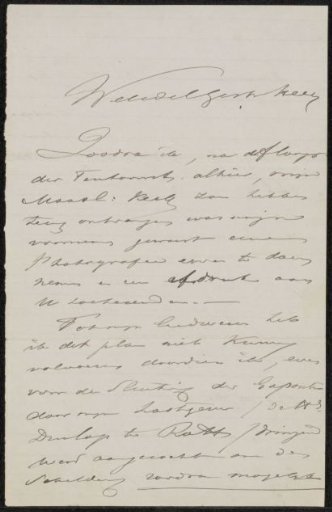 WelEdelGeb. Heer
Zoodra ik, na afloop
der Tentoonst. alhier, mijn
zou hebben
terug ontvangen was mijn
voornemen eene
Photografie er van te doen
nemen en een afdruk aan
U toetezenden.
Tot mijn leedwezen heb
ik dit plan niet kunnen
volvoeren doordien ik, even
voor de Sluiting der Exposition
door mijn lastgever (de H.H.
Dunlop te Rotts) dringend
werd aangezocht om de
Schilderij zoodra mogelijk